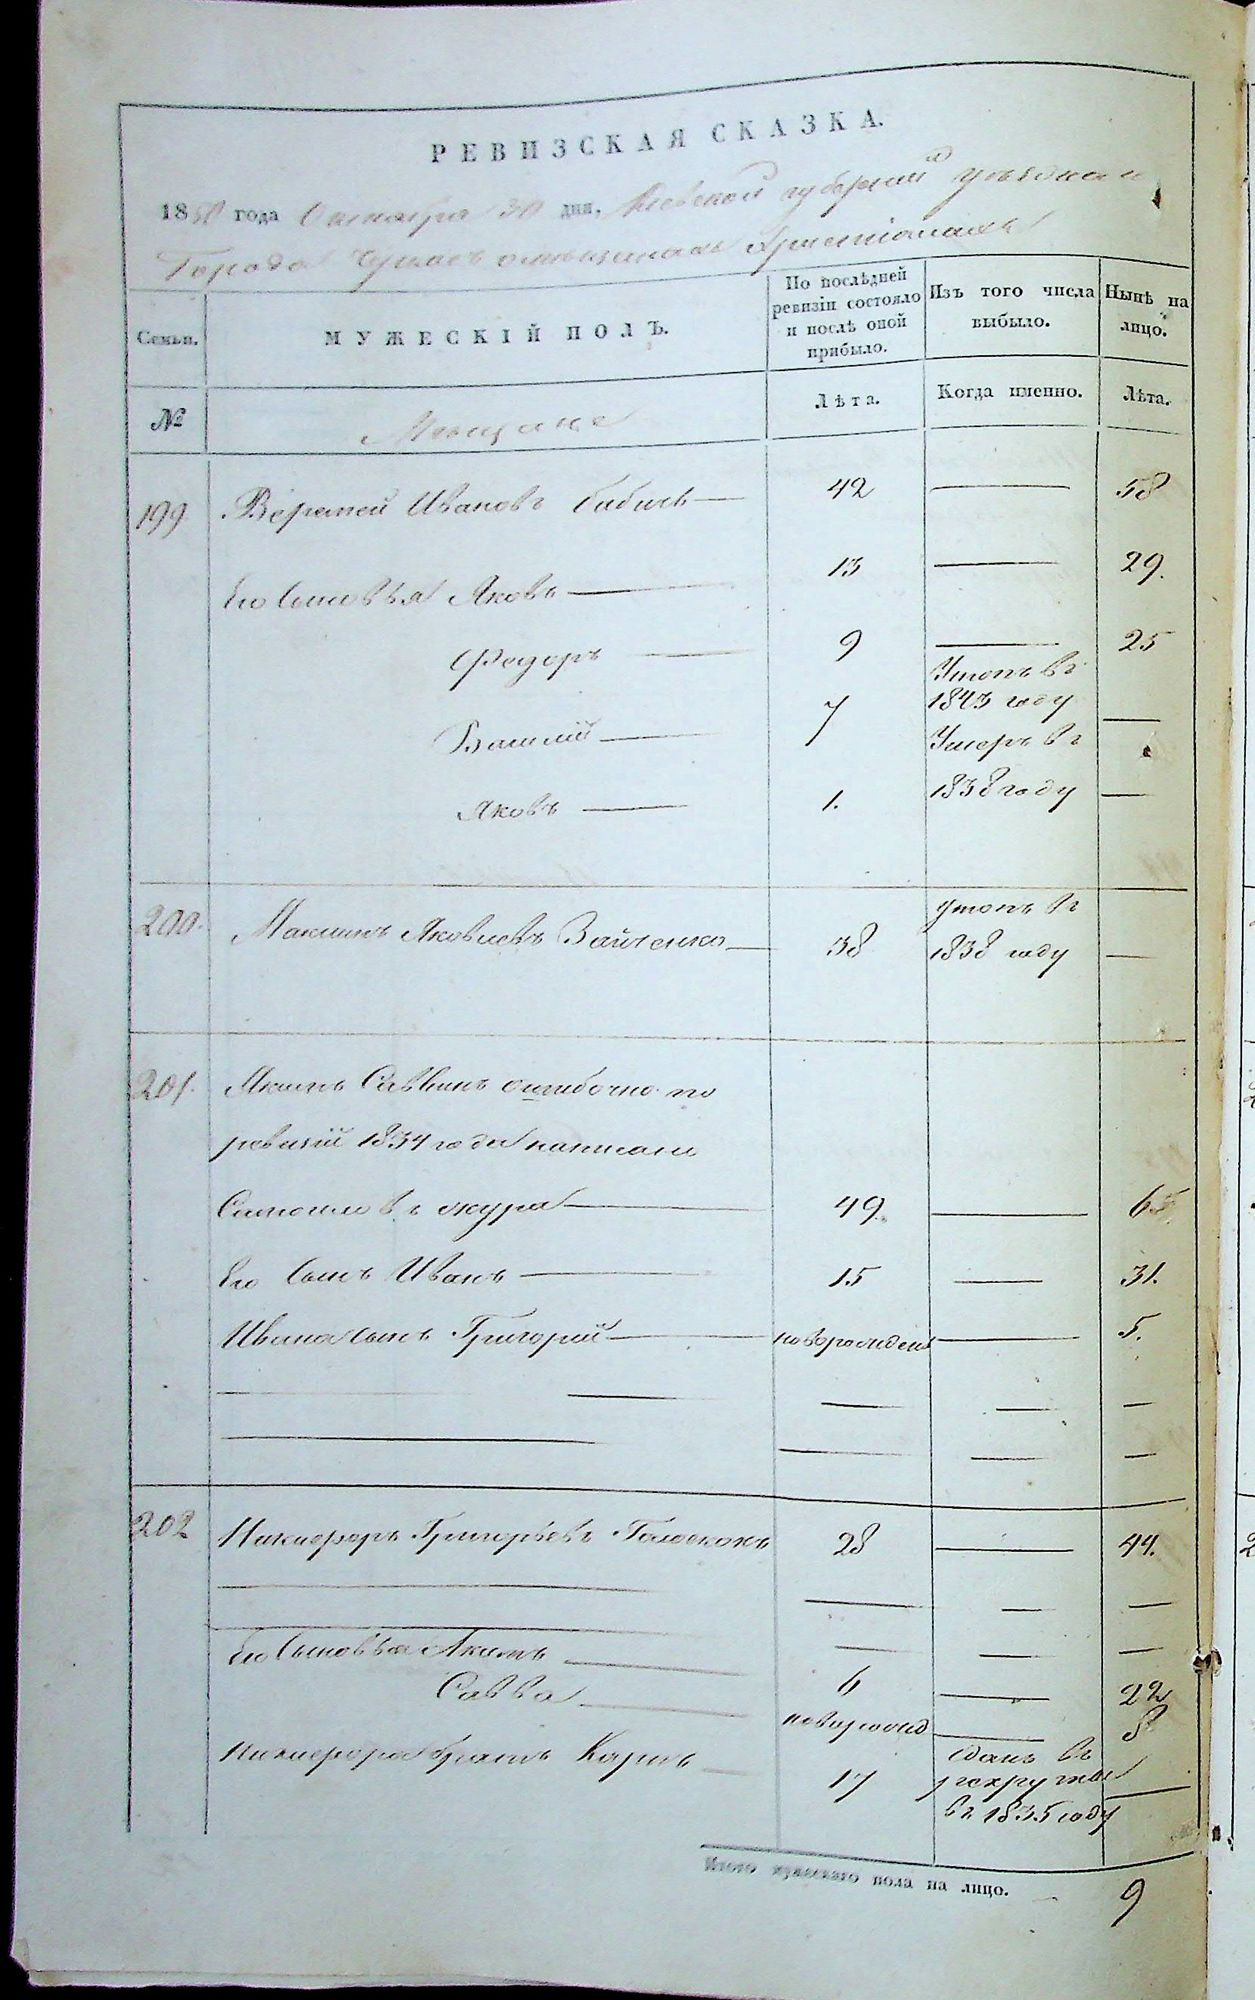 РЕВИЗСКАЯ СКАЗКА.
1850 года Октября 30 дня, Киевской губернии уезднаго
Города Черкасъ о мещанахъ христіанахъ
Семьи.
МУЖЕСКІЙ ПОЛЪ.
По послѣдней ревизіи состояло и послѣ оной прибыло.
Изъ того числа выбыло.
Нынѣ на лицо.
№
Мещане
Лѣта.
Когда именно.
Лѣта.
199 Веремей Ивановъ Бабичь 42 58
Его сыновья Яковъ 13 29.
Федоръ 9 25
Василій 7 Утопъ въ 1843 году
Яковъ 1. Умеръ въ 1838 году
200. Максимъ Яковлевъ Зайченко 38 утопъ въ 1838 году
201. Якимъ Саввинъ ошибочно по
ревизіи 1834 года написанъ
Самойловъ 49. 65.
Его сынъ Иванъ 15 31.
Ивана сынъ Григорій новорожденъ 5.
202 Никифоръ Григорьевъ 28 44.
Его сыновья Акимъ 6 22
Савва новорожд 8
Никифора братъ Карпъ 17 сданъ въ рекруты въ 1835 году
Итого мужескаго пола на лицо. 9